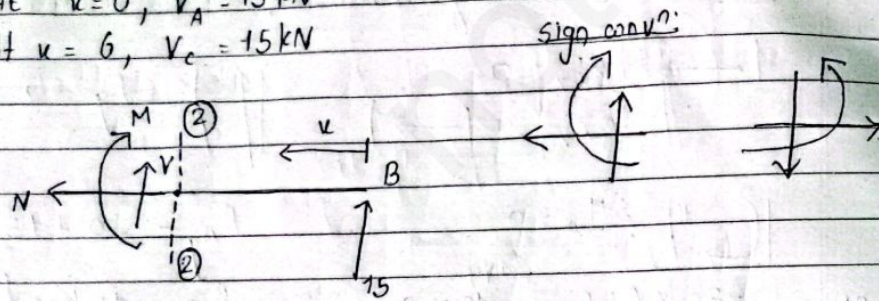 x = 0, V_A = 15 kN
x = 6, V_C = 15 kN
sign convⁿ:
M
②
x
V
B
N
②
15